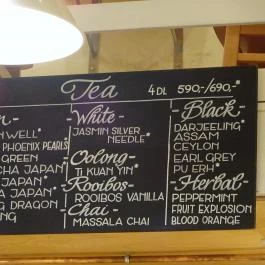 Tea 4 DL 590,-/690,-*
NWELL*
PHOENIX PEARLS
GREEN
CHA JAPAN*
JAPAN*
JAPAN*
G DRAGON
NG
- White -
JASMIN SILVER
NEEDLE*
- Oolong -
TI KUAN YIN*
- Rooibos -
ROOIBOS VANILLA
- Chai -
MASSALA CHAI
- Black -
DARJEELING*
ASSAM
CEYLON
EARL GREY
PU ERH*
- Herbal -
PEPPERMINT
FRUIT EXPLOSION
BLOOD ORANGE